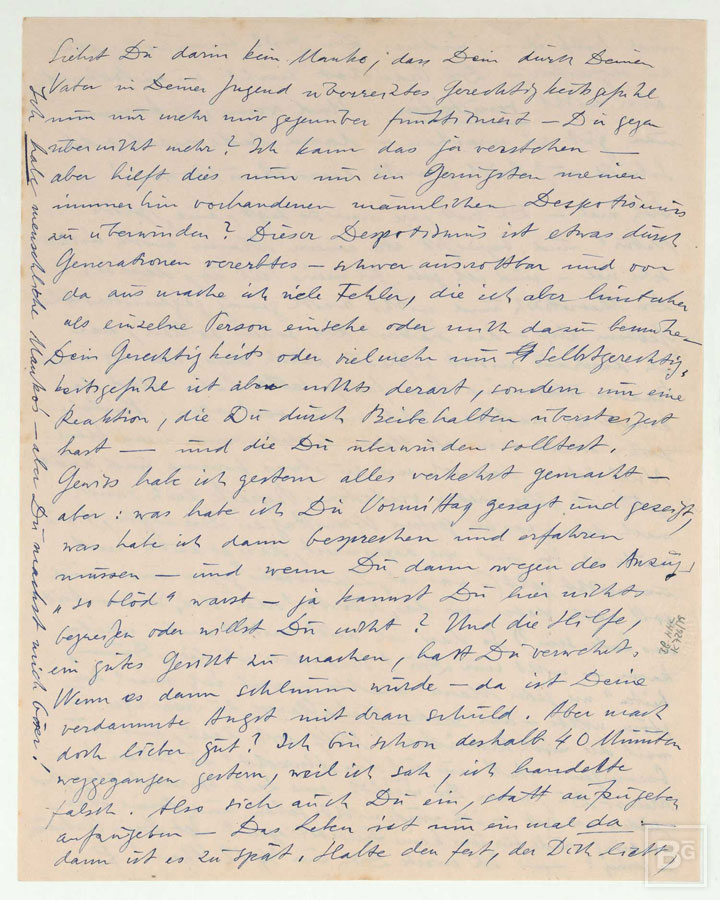 Siehst Du darin kein Manko, dass Dein durch Deinen
Vater in Deiner Jugend überreiztes Gerechtigkeitsgefühl
nun nur mehr mir gegenüber funktioniert – Dir gegen
über nicht mehr? Ich kann das ja verstehen –
aber hilft dies nun mir im Geringsten meinen
immerhin vorhandenen männlichen Despotismus
zu überwinden? Dieser Despotismus ist etwas durch
Generationen vererbtes – schwer ausrottbar und von
da aus mache ich viele Fehler, die ich aber hinterher
als einzelne Person einsehe oder mich dazu bemühe –
Dein Gerechtigkeits oder vielmehr nur Selbstgerechtig-
keitsgefühl ist aber nichts derart, sondern nur eine
Reaktion, die Du durch Beibehalten übersteigert
hast – und die Du überwinden solltest.
Gewiss habe ich gestern alles verkehrt gemacht –
aber: was habe ich Dir Vormittag gesagt und gezeigt,
was habe ich dann besprechen und erfahren
müssen – und wenn Du dann wegen des Anzugs
„so blöd“ warst – ja kannst Du hier nichts
begreifen oder willst Du nicht? Und die Hilfe,
ein gutes Gesicht zu machen, hast Du verwehrt.
Wenn es dann schlimm wurde – da ist Deine
verdammte Angst mit dran schuld. Aber mach
doch lieber gut? Ich bin schon deshalb 40 Minuten
weggegangen gestern, weil ich sah, ich handelte
falsch. Also sieh auch Du ein, statt aufzugeben
anfangeben – Das Leben ist nun einmal da –
dann ist es zu spät. Halte den fest, der Dich liebt,
Ich habe menschliche Mankos – aber Du machst mich böser!
BG